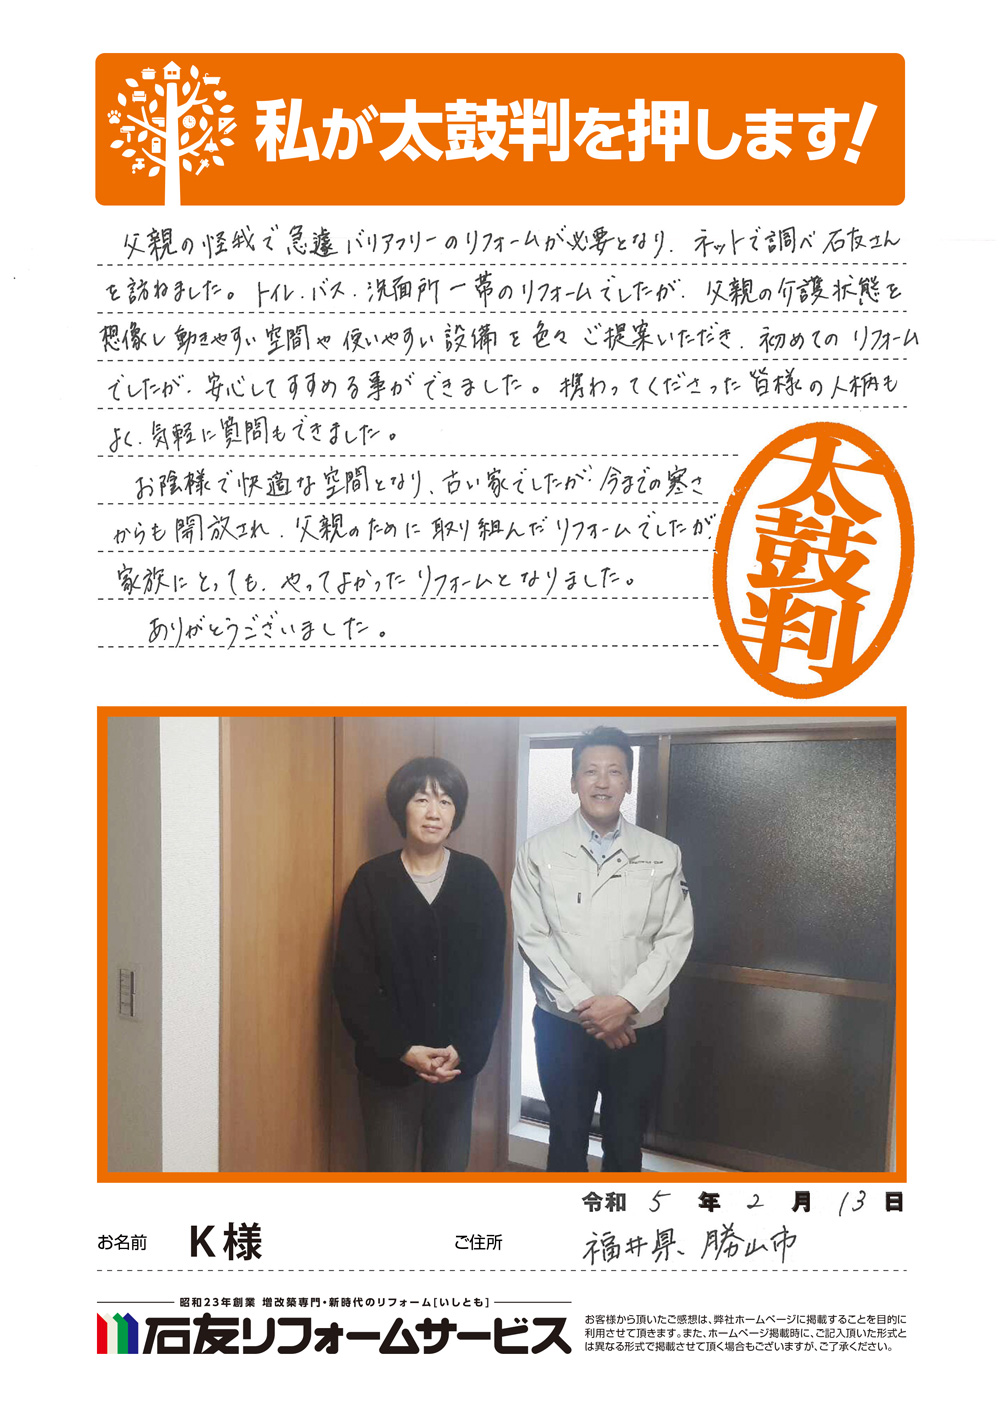 私が太鼓判を押します!
父親の怪我で急遽バリアフリーのリフォームが必要となり、ネットで調べ石友さん
を訪ねました。トイレ、バス、洗面所一帯のリフォームでしたが、父親の介護状態を
想像し動きやすい空間や使いやすい設備を色々ご提案いただき、初めてのリフォーム
でしたが、安心してすすめる事ができました。携わってくださった皆様の人柄も
よく、気軽に質問もできました。
お陰様で快適な空間となり、古い家でしたが今までの寒さ
からも開放され、父親のために取り組んだリフォームでしたが
家族にとっても、やってよかったリフォームとなりました。
ありがとうございました。
太鼓判
令和 5 年 2 月 13 日
お名前 K様 ご住所 福井県、勝山市
昭和23年創業 増改築専門・新時代のリフォーム[いしとも]
石友リフォームサービス
お客様から頂いたご感想は、弊社ホームページに掲載することを目的に
利用させて頂きます。また、ホームページ掲載時に、ご記入頂いた形式と
は異なる形式で掲載させて頂く場合もございますが、ご了承ください。